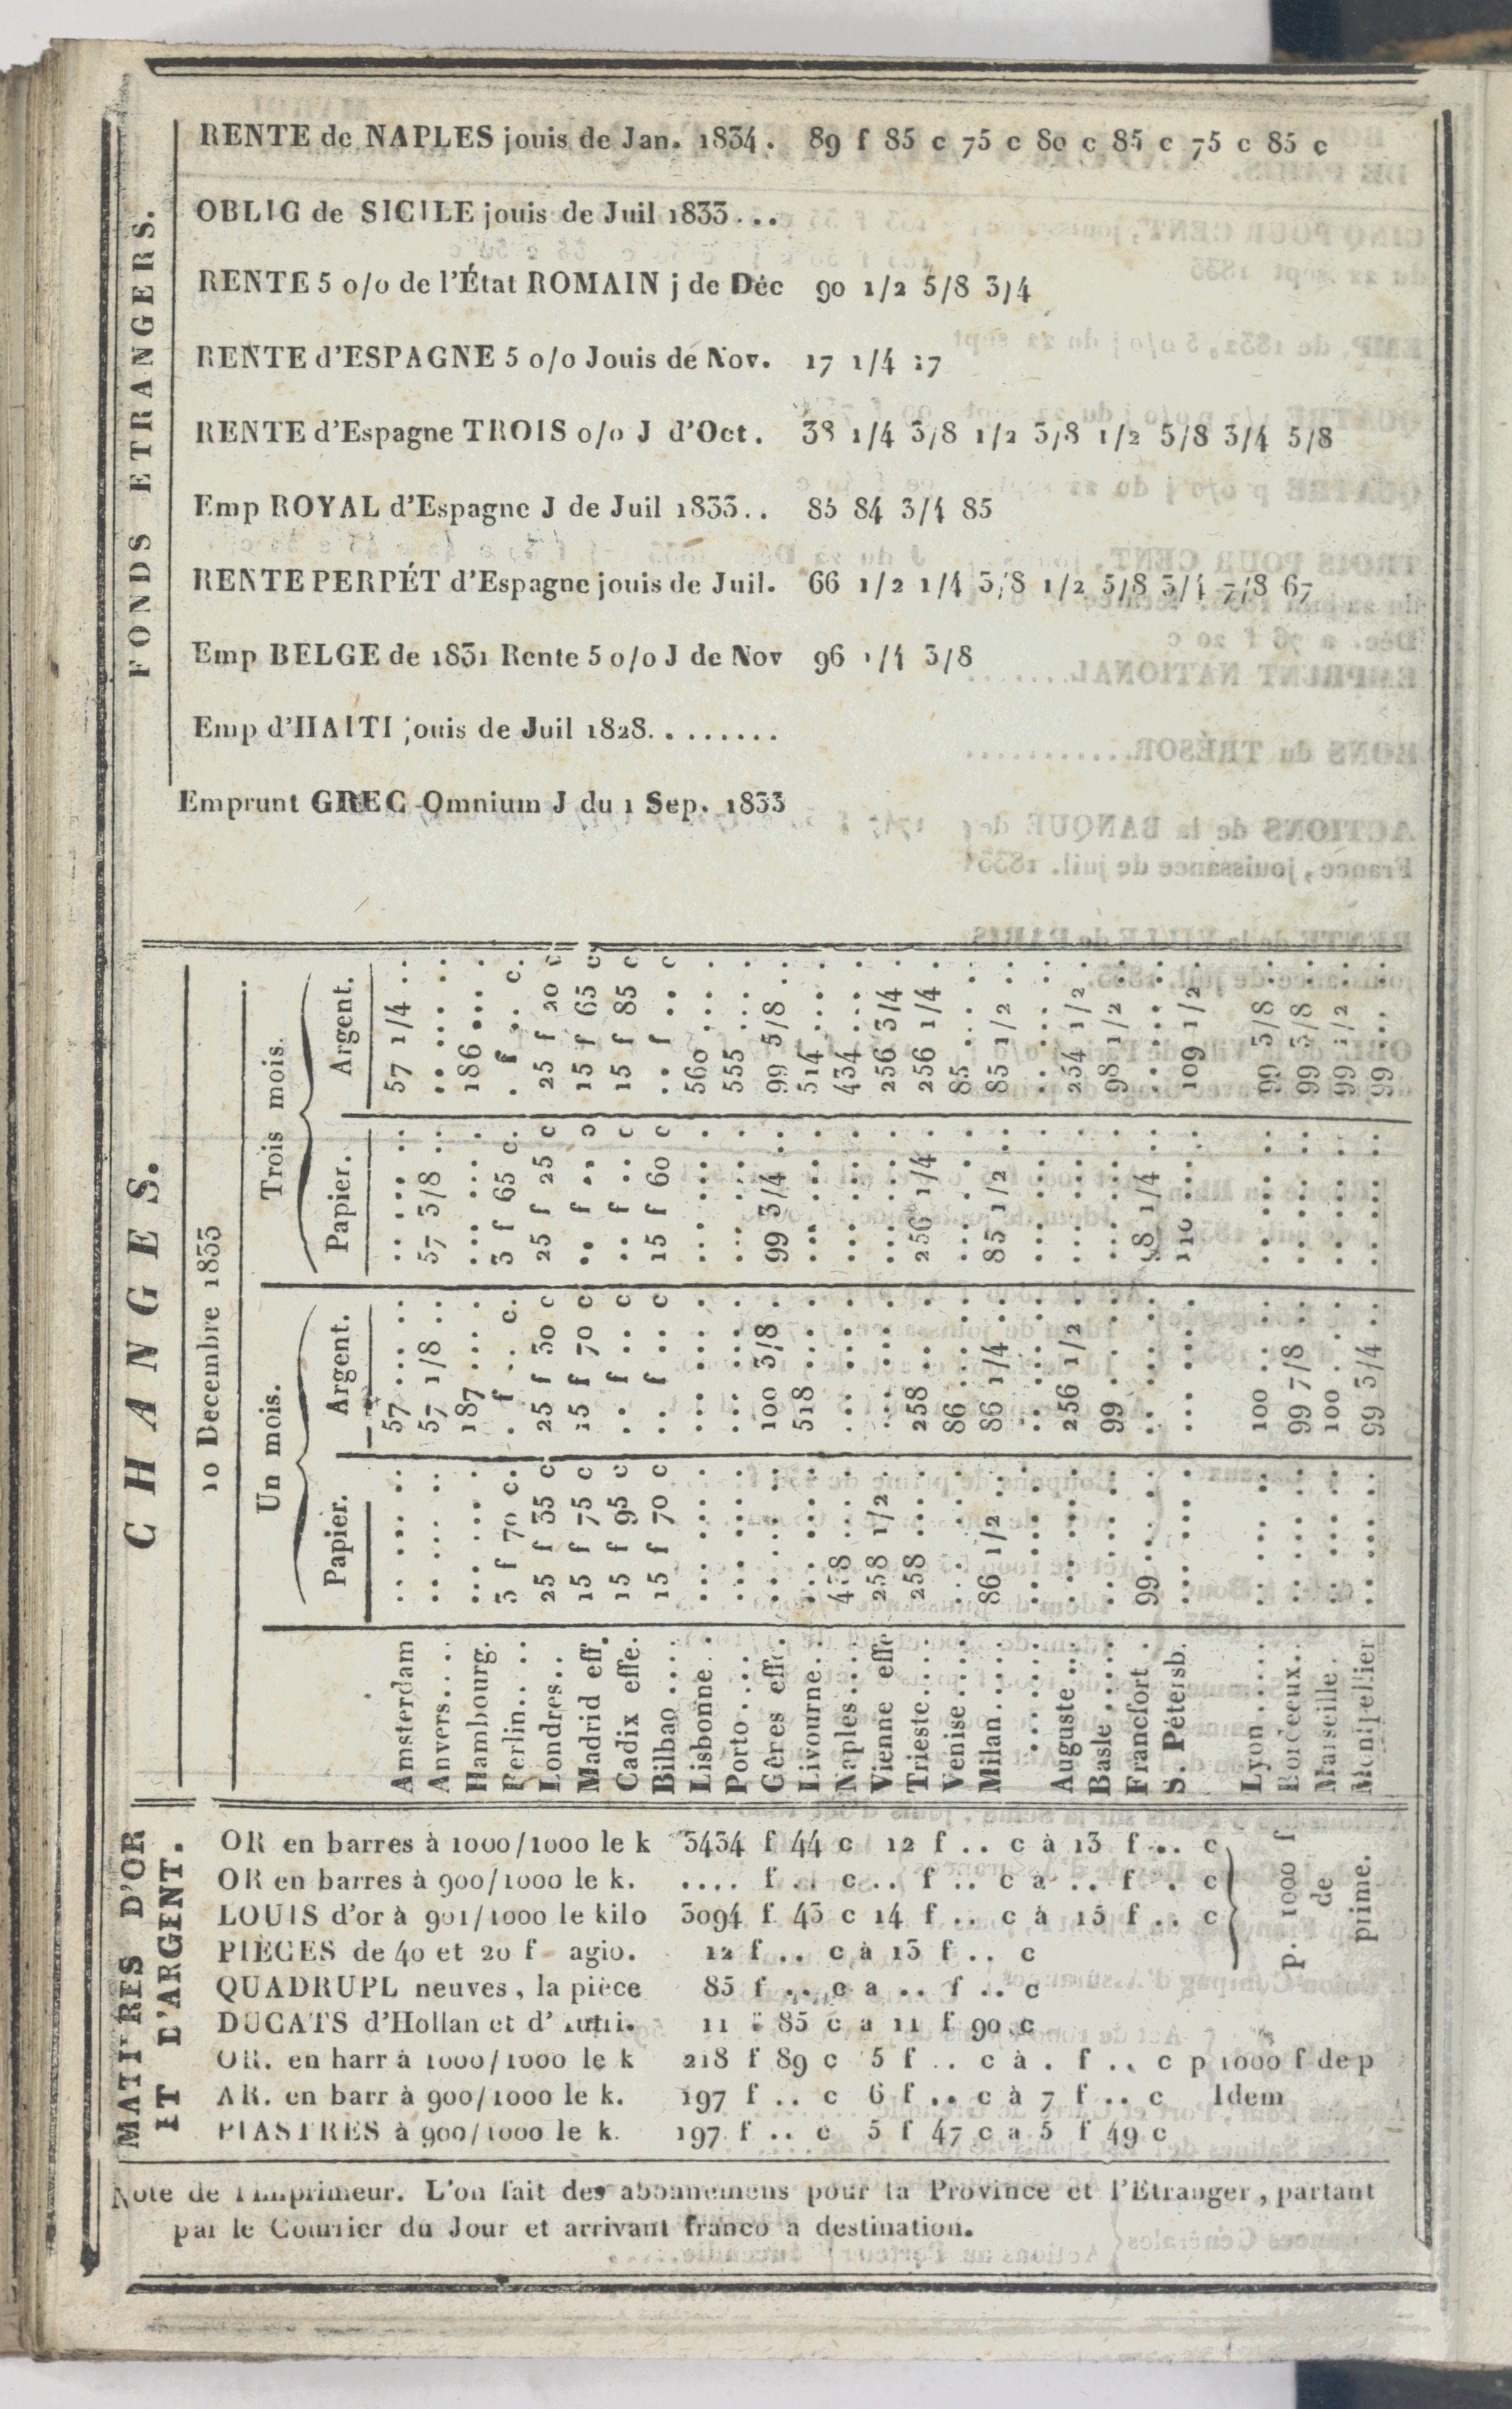 FONDS ETRANGERS.
RENTE de NAPLES jouis de Jan. 1834. 89 f 85 c 75 c 80 c 85 c 75 c 85 c
OBLIG de SICILE jouis de Juil 1833...
RENTE 5 o/o de l'État ROMAIN j de Déc 90 1/2 5/8 3/4
RENTE d'ESPAGNE 5 o/o Jouis de Nov. 17 1/4 17
RENTE d'Espagne TROIS o/o J d'Oct. 38 1/4 3/8 1/2 3/8 1/2 5/8 3/4 5/8
Emp ROYAL d'Espagne J de Juil 1833.. 85 84 3/4 85
RENTE PERPÉT d'Espagne jouis de Juil. 66 1/2 1/4 3/8 1/2 5/8 3/4 7/8 67
Emp BELGE de 1831 Rente 5 o/o J de Nov 96 1/4 3/8
Emp d'HAITI jouis de Juil 1828.........
Emprunt GREC Omnium J du 1 Sep. 1833
CHANGES.
10 Decembre 1833
Un mois. Trois mois.
Papier. Argent. Papier. Argent.
Amsterdam .. .... .. 57 .... .. .. .... .. 57 1/4 ..
Anvers.... .. .... .. 57 1/8 .. 57 3/8 .. .. .... ..
Hambourg. ... .... . 187 .... . ... .... . 186 ... .
Berlin.... 3 f 70 c. . f .. c. 3 f 65 c. . f .. c.
Londres... 25 f 35 c 25 f 30 c 25 f 25 c 25 f 20 c
Madrid eff. 15 f 75 c 15 f 70 c .. f .. c 15 f 65 c
Cadix effe. 15 f 95 c .. f .. c .. f .. c 15 f 85 c
Bilbao .... 15 f 70 c .. f .. c 15 f 60 c .. f .. c
Lisbonne . ... .... . ... .... . ... .... . 560 .... .
Porto .... ... .... . ... .... . ... .... . 555 .... .
Gênes effe. .. .... .. 100 3/8 . 99 3/4 .. 99 5/8 ..
Livourne.. ... .... . 518 .... . ... .... . 514 .... .
Naples.... 438 .... . ... .... . ... .... . 434 .... .
Vienne effe 258 1/2 . ... .... . ... .... . 256 3/4 .
Trieste.... 258 ... . 258 ... . 256 1/4 . 256 1/4 .
Venise .... ... .... . 86 .... . ... .... . 85 .... .
Milan..... 86 1/2 . 86 1/4 . 85 1/2 . 85 1/2 .
Auguste ... .. .... .. 256 1/2 . .. .... .. 254 1/2 .
Basle ..... .. .... .. 99 .... . .. .... .. 98 1/2 ..
Francfort . 99 .... . .. .... . 98 1/4 . .. .... .
S. Pétersb. ... .... . ... .... . 110 .... . 109 1/2 .
Lyon ...... .. .... .. 100 .. .. .. .... .. 99 3/8 ..
Bordeaux.. .. .... .. 99 7/8 .. .. .... .. 99 3/8 ..
Marseille . .. .... .. 100 .. .. .. .... .. 99 1/2 ..
Montpellier .. .... .. 99 3/4 .. .. .... .. 99 .... ..
MATIÈRES D'OR
ET D'ARGENT.
OR en barres à 1000/1000 le k 3434 f 44 c 12 f .. c à 13 f .. c
OR en barres à 900/1000 le k. .... f .. c .. f .. c à .. f .. c
LOUIS d'or à 901/1000 le kilo 3094 f 43 c 14 f .. c à 15 f .. c
p. 1000 f
de
prime.
PIÈCES de 40 et 20 f agio. 12 f .. c à 13 f .. c
QUADRUPL neuves, la pièce 85 f .. c a .. f .. c
DUCATS d'Hollan et d' 11 f 85 c a 11 f 90 c
en barr à 1000/1000 le k 218 f 89 c 5 f .. c à . f .. c p 1000 f de p
AR. en barr à 900/1000 le k. 197 f .. c 6 f .. c à 7 f .. c Idem
PIASTRES à 900/1000 le k. 197 f .. c 5 f 47 c a 5 f 49 c
Note de l'Imprimeur. L'on fait des abonnemens pour la Province et l'Etranger, partant
par le Courrier du Jour et arrivant franco a destination.